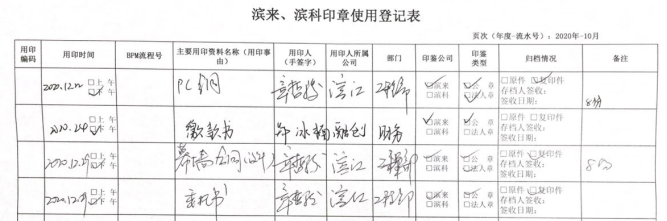 滨来、滨科印章使用登记表
页次（年度-流水号）：2020年-10月
用印编码 用印时间 BPM流程号 主要用印资料名称（用印事由） 用印人（手签字） 用印人所属公司 部门 印鉴公司 印鉴类型 归档情况 备注
2020.12.12 □上 午 □下 午 PC钢 滨江 工程部 □滨来 □滨科 □公 章 □法人章 □原件 □复印件 存档人签收： 签收日期： 8份
□上 午 □下 午 缴款书 融创 财务 □滨来 □滨科 □公 章 □法人章 □原件 □复印件 存档人签收： 签收日期：
□上 午 □下 午 幕墙合同 滨江 工程部 □滨来 □滨科 □公 章 □法人章 □原件 □复印件 存档人签收： 签收日期： 8份
□上 午 □下 午 委托书 滨江 工程部 □滨来 □滨科 □公 章 □法人章 □原件 □复印件 存档人签收： 签收日期：